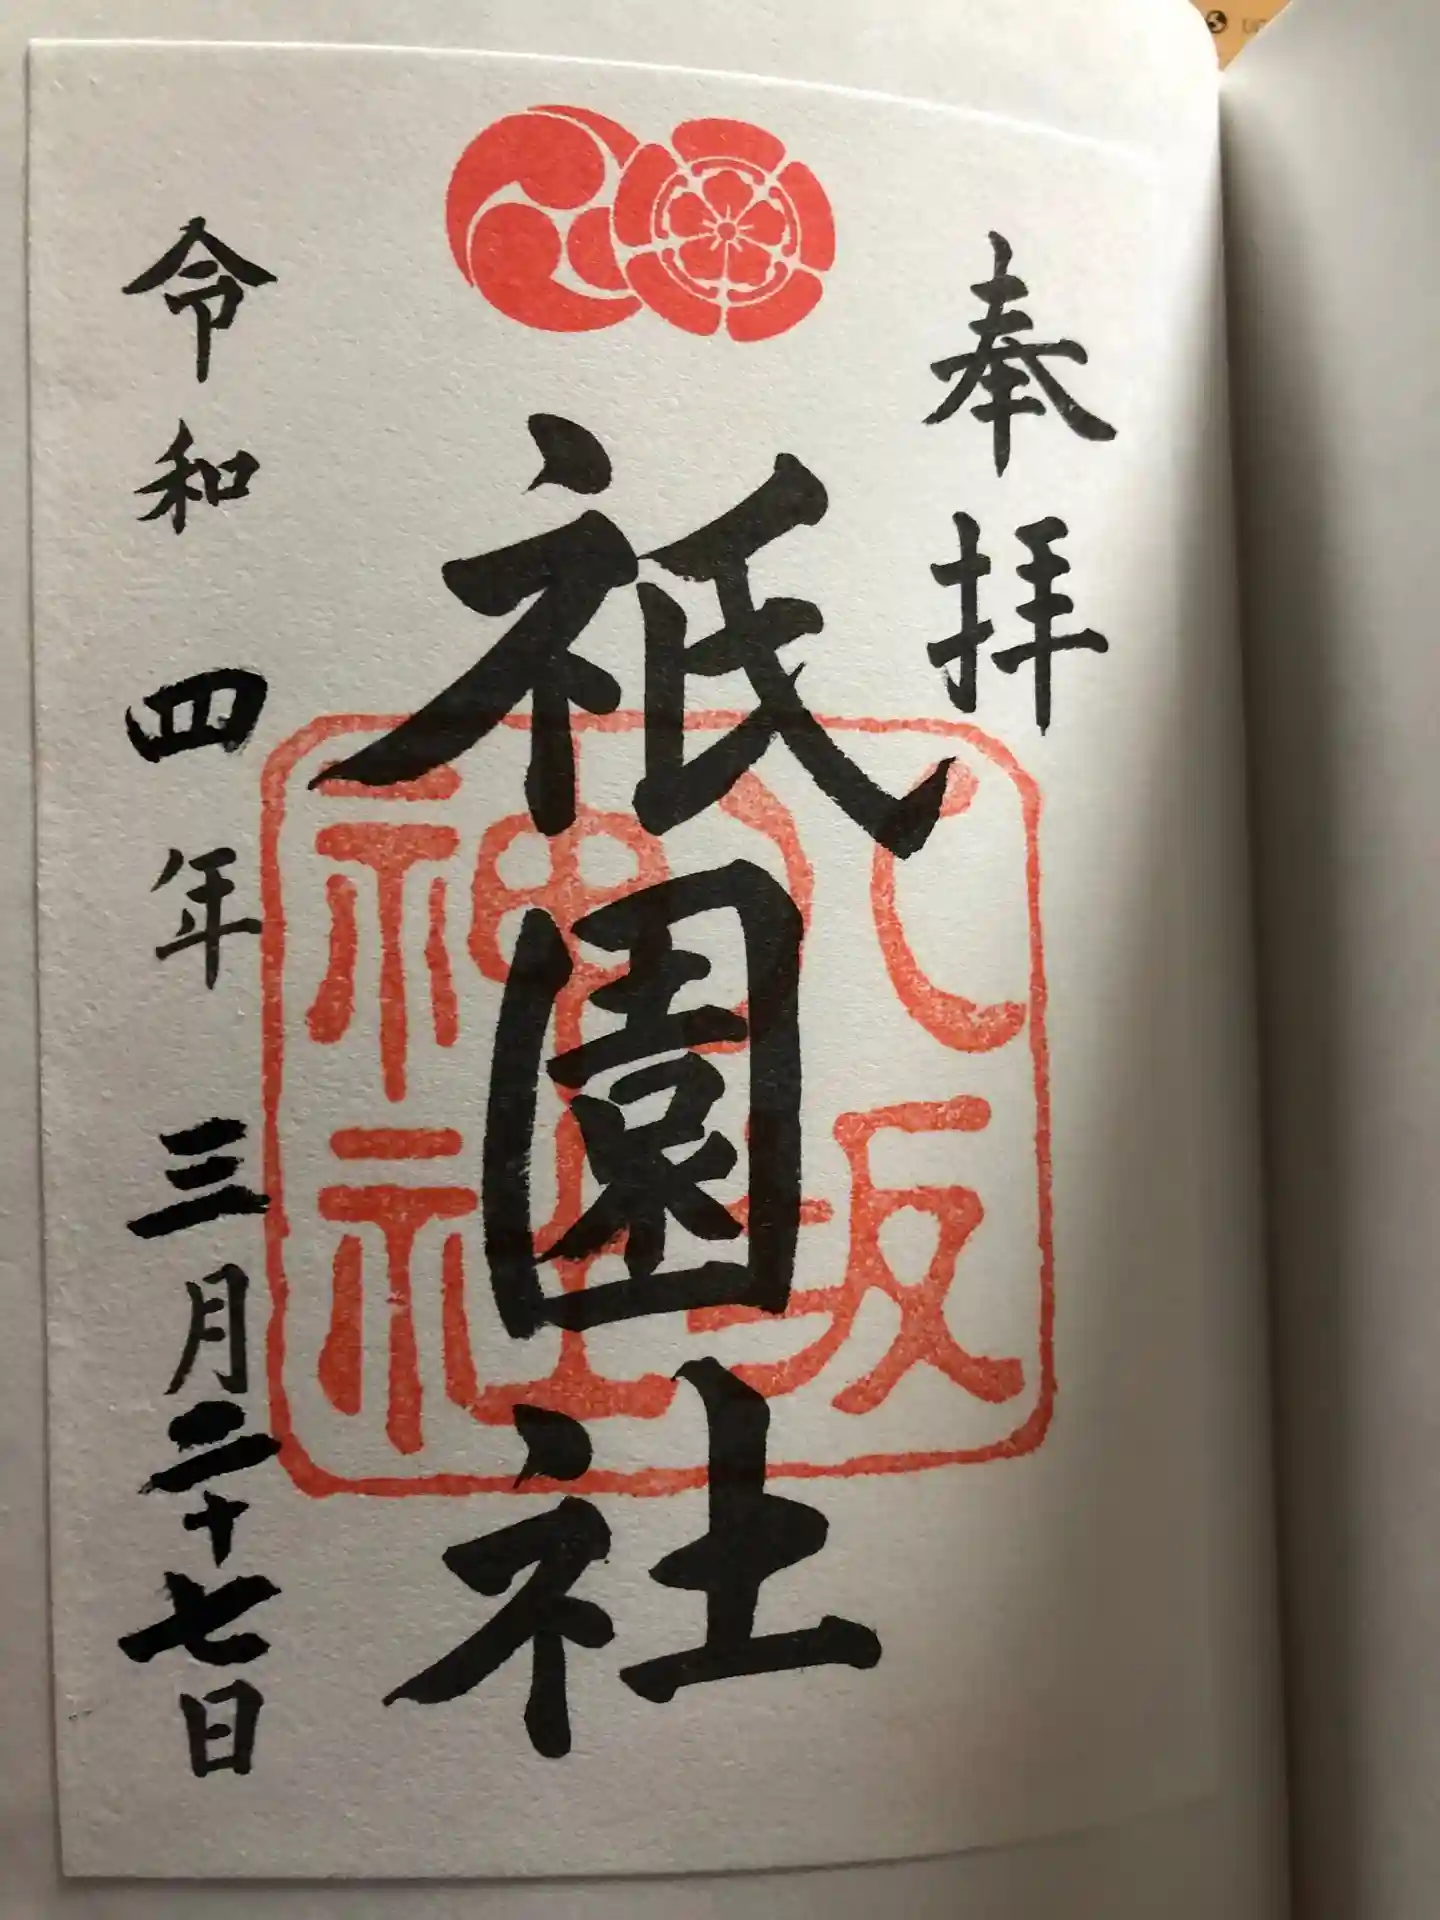 奉拝
祇園社
八坂
神社
令和四年三月二十七日